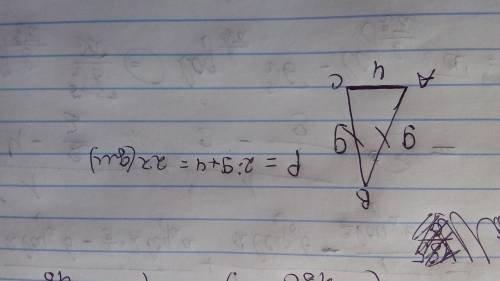 B
9 9
A 4 C
P = 2·9+4 = 22 (дм)